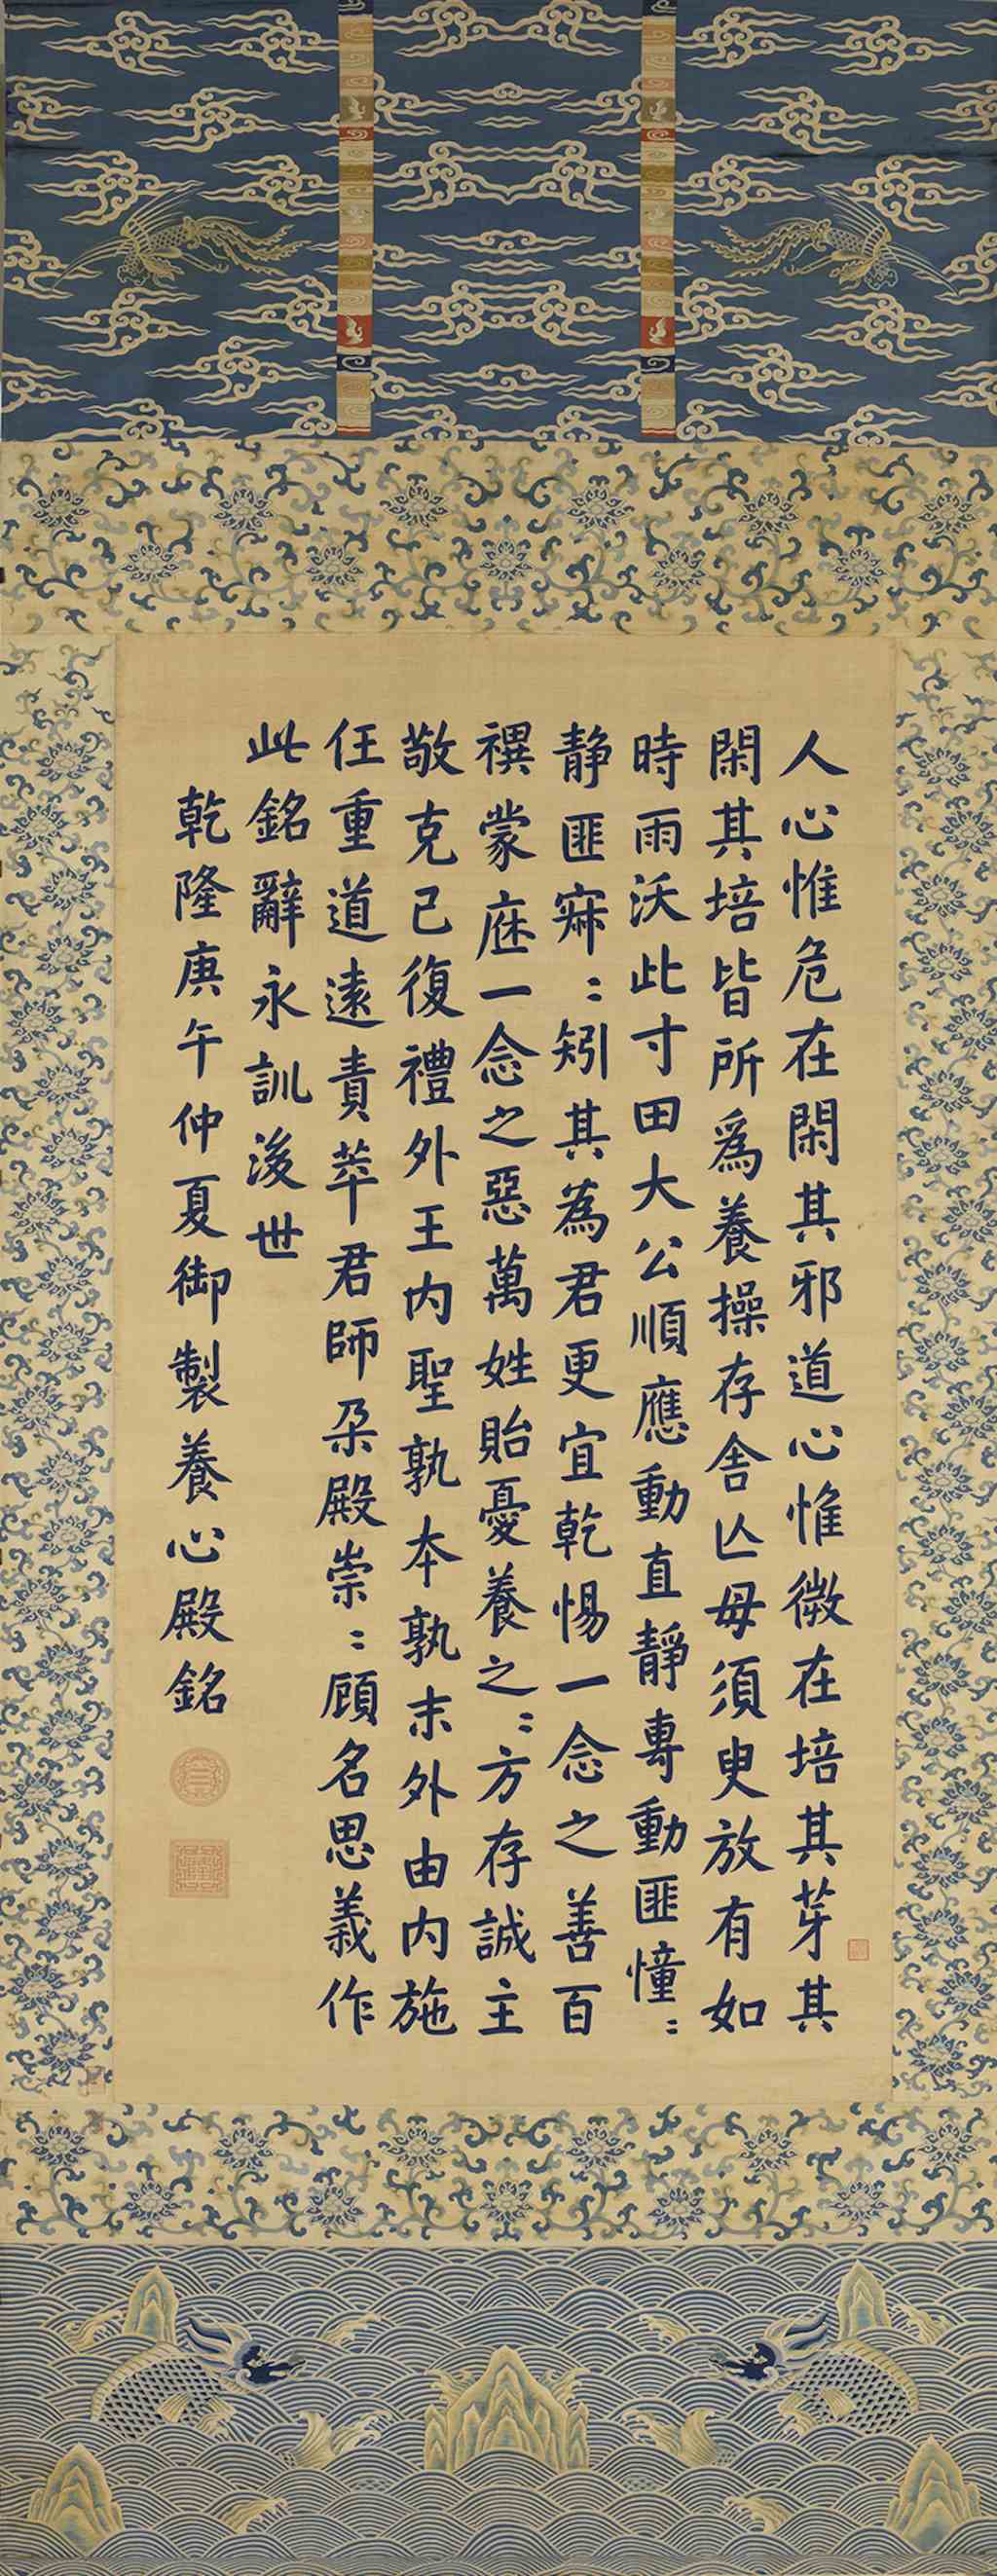 人心惟危在閑其邪道心惟微在培其芽其
閑其培皆所為養操存舍亾毋須臾放有如
時雨沃此寸田大公順應動直靜專動匪憧〻
靜匪寐〻矧其為君更宜乾惕一念之善百
禩蒙庥一念之惡萬姓貽憂養之〻方存誠主
敬克己復禮外王內聖孰本孰末外由內施
任重道遠責萃君師朶殿崇〻顧名思義作
此銘辭永訓後世
乾隆庚午仲夏御製養心殿銘